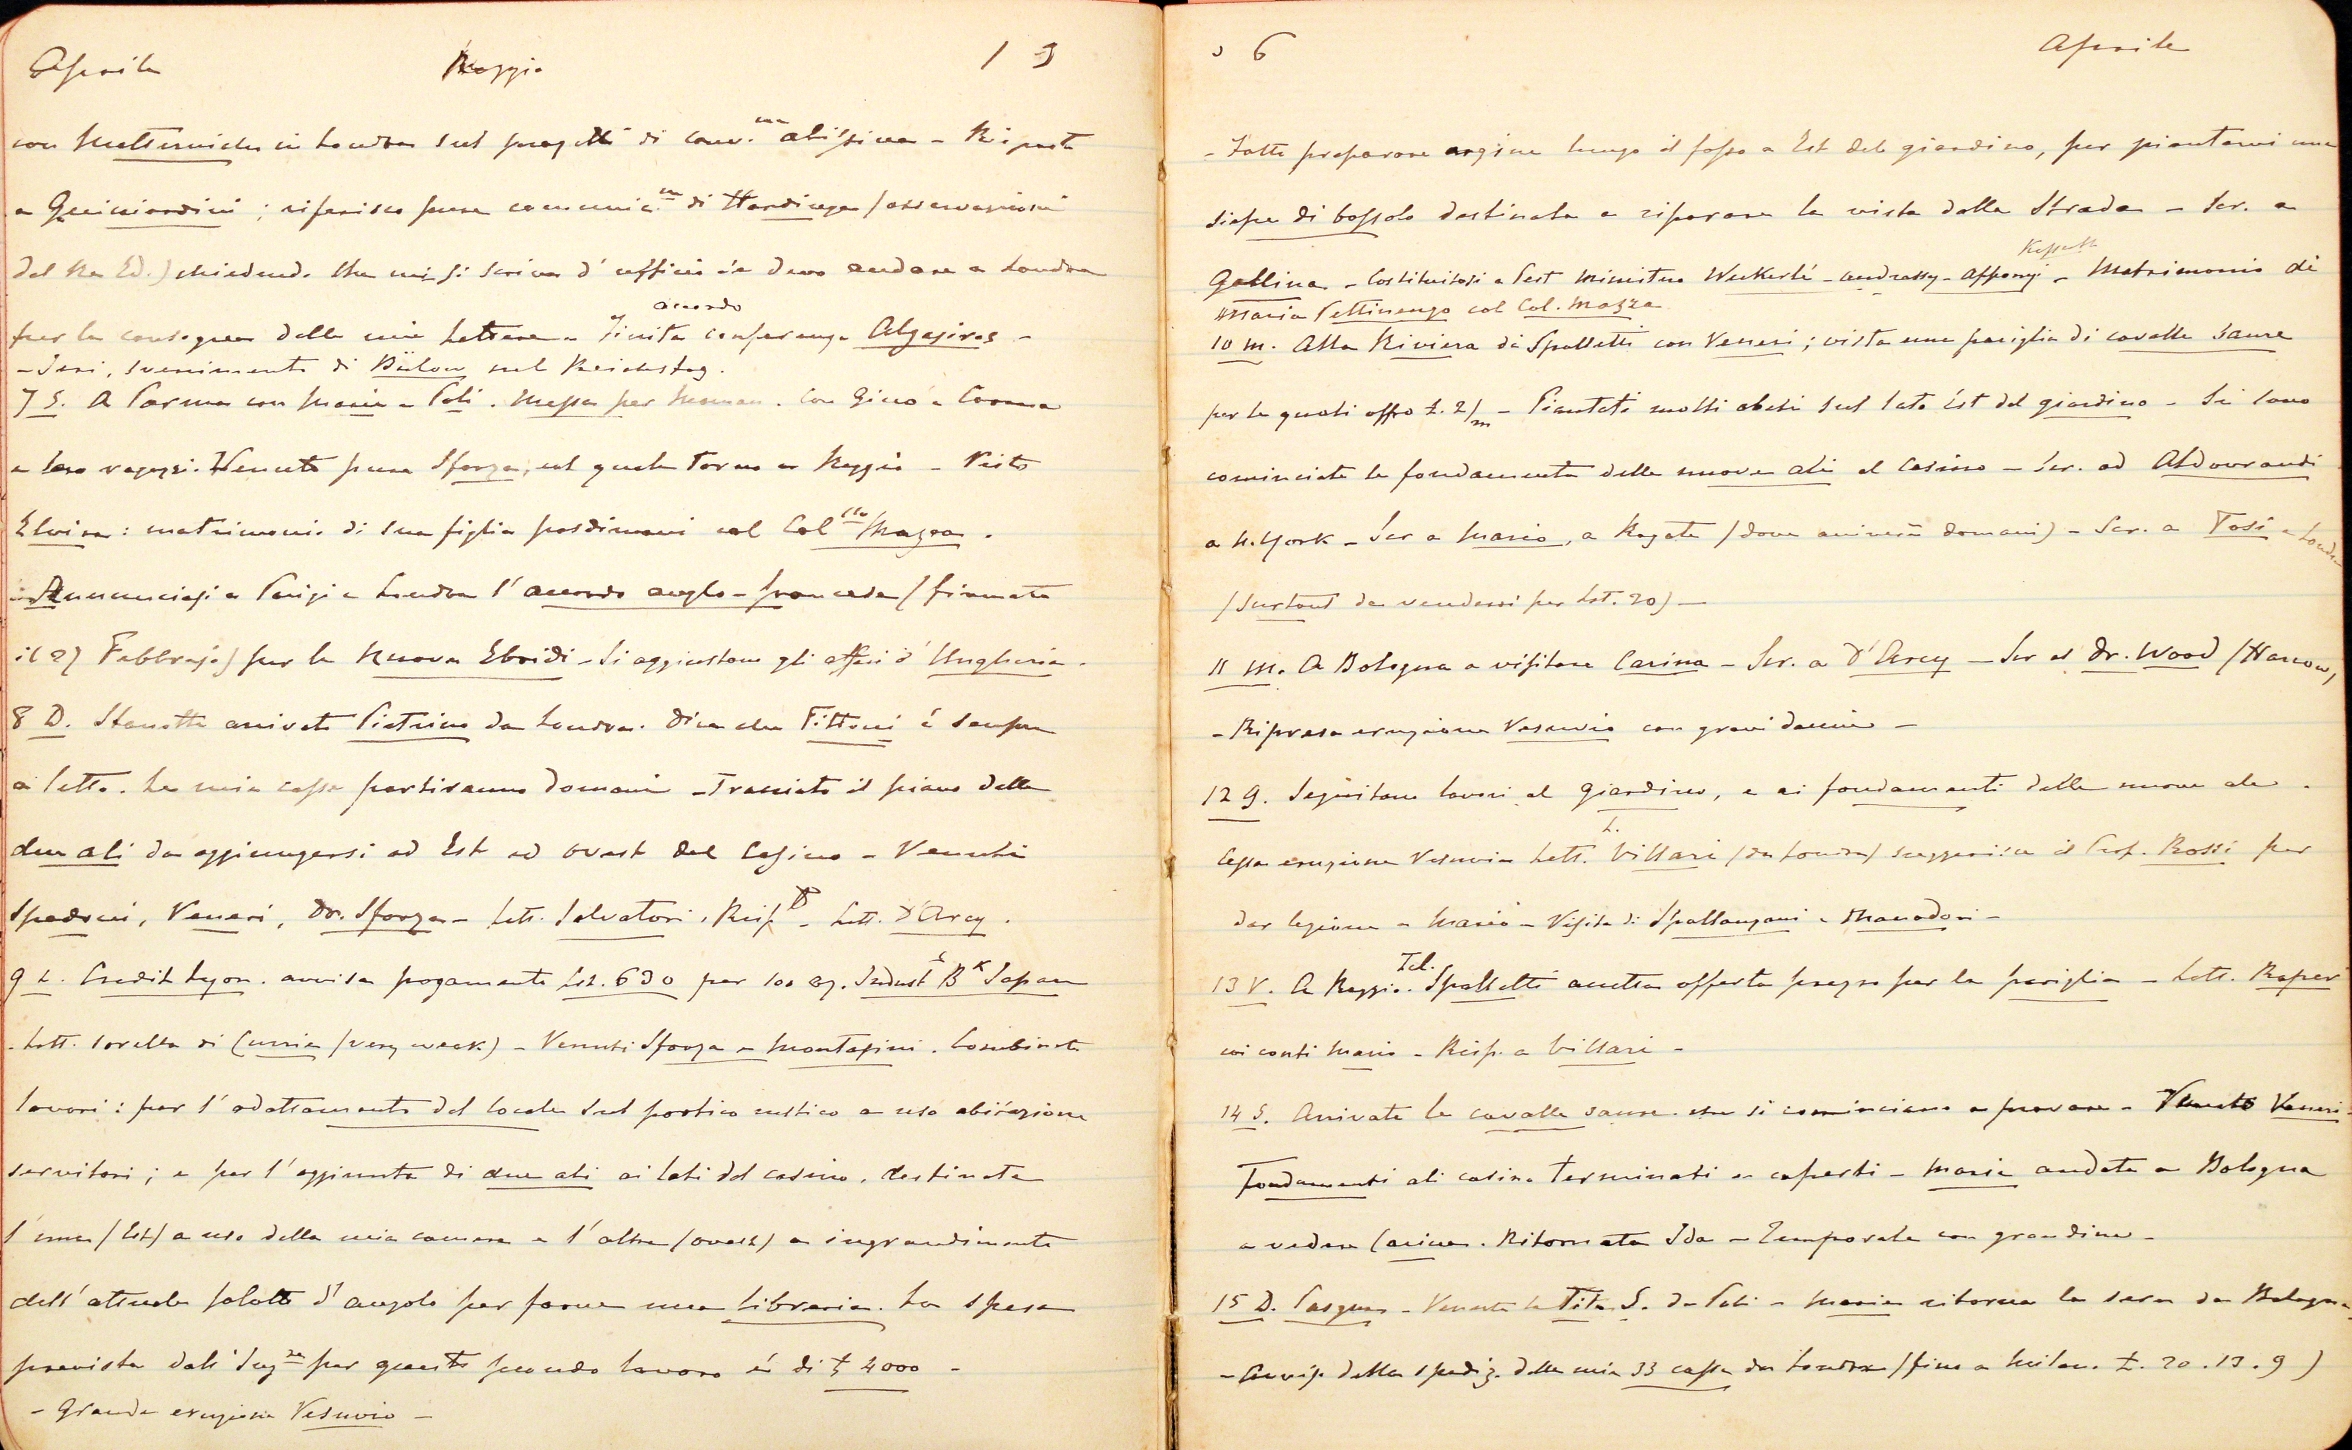 Aprile Reggio 19
con Metternich in Londra sul progetto di conv.ne abissina - Risposta
a Guicciardini ; riferisco pure comunic.ne di Hardinge (osservazioni
del Re Ed.) chiedendo che mi si scriva d'ufficio se devo andare a Londra
accordo
per la consegna delle mie lettere - Finita conferenza Algesiras -
- Ieri, svenimento di Bülow nel Reichstag.
7 S. A Parma con Maria e Poli. Messa per Maman. Con Gino e
e loro ragazzi. Venuto pure Sforza, col quale torno a Reggio - Visto
Elvira : matrimonio di sua figlia posdimani col Col.llo Mazza.
- Annunciasi a Parigi e Londra l'accordo anglo-francese (firmato
il 27 Febbrajo) per le Nuove Ebridi - Si aggiustano gli affari d'Ungheria.
8 D. Stanotte arrivato Pietrino da Londra. Dice che Tittoni è sempre
a letto. Le mie casse partiranno domani - Tracciato il piano delle
due ali da aggiungersi ad Est ed Ovest del Casino - Venuti
Spadoni, Veneri, Dr. Sforza - Lett. Salvatori. Risp. - Lett. D'Arcy.
9 L. Credit Lyon. avvisa pagamento Lst. 630 per 100 az. Indust.l Bk Japan
- Lett. sorella di (very weak) - Venuti Sforza e Montasini. Combinato
lavori : per l'adattamento del locale sul portico rustico a uso abitazione
servitori ; e per l'aggiunta di due ali ai lati del casino, destinate
l'una (Est) a uso della mia camera e l'altra (ovest) a ingrandimento
dell'attuale salotto d'angolo per farne una libreria. La spesa
prevista dall'Ing.re per questo secondo lavoro è di £ 4000 -
- Grande eruzione Vesuvio -
06 Aprile
- Fatto preparare argine lungo il fosso a Est del giardino, per piantarvi una
siepe di bossolo destinata a riparare la vista dalla Strada - Scr. a
Kossuth
Gallina - Costituitosi a Pest Ministero Weckerlé - Andrassy - Apponyi - Matrimonio di
Maria Pettinengo col Col. Mazza
10 M. Alla Riviera di Spalletti con Veneri ; vista una pariglia di cavalle saure
per le quali offro £. 2/m - Piantati molti abeti sul lato Est del giardino - Si sono
cominciate le fondamenta delle nuove ali al Casino - Scr. ad Aldovrandi
a N. York - Scr a Mario, a Rogate (dove arriverà domani) - Scr. a Tosi a Londra
(Surtout da vendersi per Lst. 20) -
11 M. A Bologna a visitare Carina - Scr. a D'Arcy - Scr al Dr. Wood (Harrow)
- Ripresa eruzione Vesuvio con gravi danni -
12 G. Seguitano lavori al giardino, e ai fondamenti delle nuove ale.
L.
Cessa eruzione Vesuvio Lett. Villari (da Londra) suggerisce il Prof. Rossi per
dar lezione a Mario - Visita di Spallanzani e Manodori -
Tel.
13 V. A Reggio. Spalletti accetta offerta prezzo per la pariglia - Lett. Roper
coi conti Mario - Risp. a Villari -
14 S. Arrivate le cavalle saure che si cominciano a provare - Venuto Veneri
Fondamenti ali casino terminati e coperti - Maria andata a Bologna
a vedere Carina. Ritornata Ida - Temporale con grandine -
15 D. Pasqua - Venuta la Tita S. da Poli - Maria ritorna la sera da Bologna
- Avviso della spediz. delle mie 33 casse da Londra (fino a Milano £. 20.13.9)